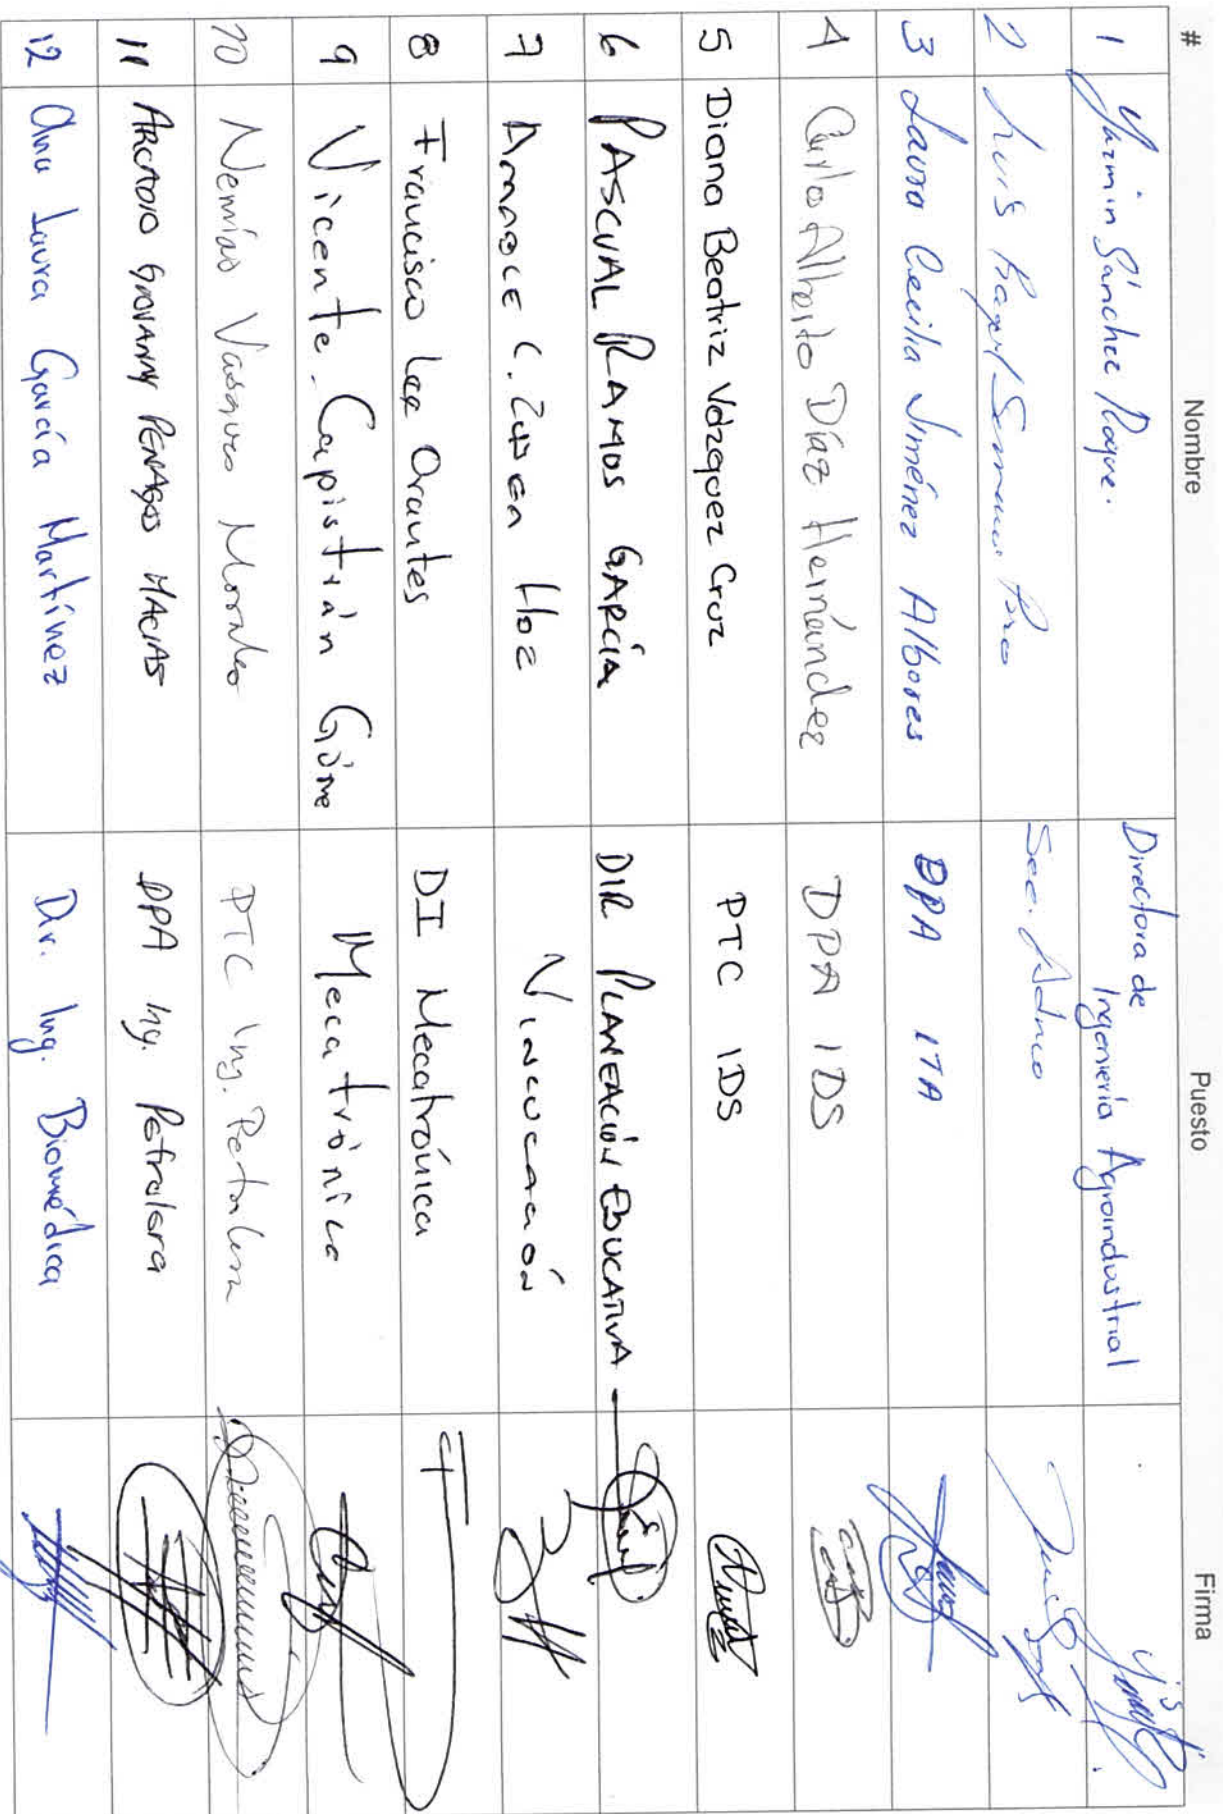 # Nombre Puesto Firma
1 Yazmin Sánchez Roque. Directora de
Ingeniería Agroindustrial
2 Luis Sec. Admvo
3 Laura Cecilia Jiménez Albores DPA ITA
4 Carlos Alberto Díaz Hernández DPA IDS
5 Diana Beatriz Vázquez Cruz PTC IDS
6 PASCUAL RAMOS GARCÍA DIR PLANEACIÓN EDUCATIVA
7 C. Hoz VINCULACIÓN
8 Francisco Lee Orantes DI Mecatrónica
9 Vicente Capistrán Góme Mecatrónica
10 Nemías Vásquez Morales PTC Ing. Petrolera
11 ARCADIO GIOVANNY PENAGOS MACIAS DPA Ing. Petrolera
12 Ana Laura García Martínez Dir. Ing. Biomédica